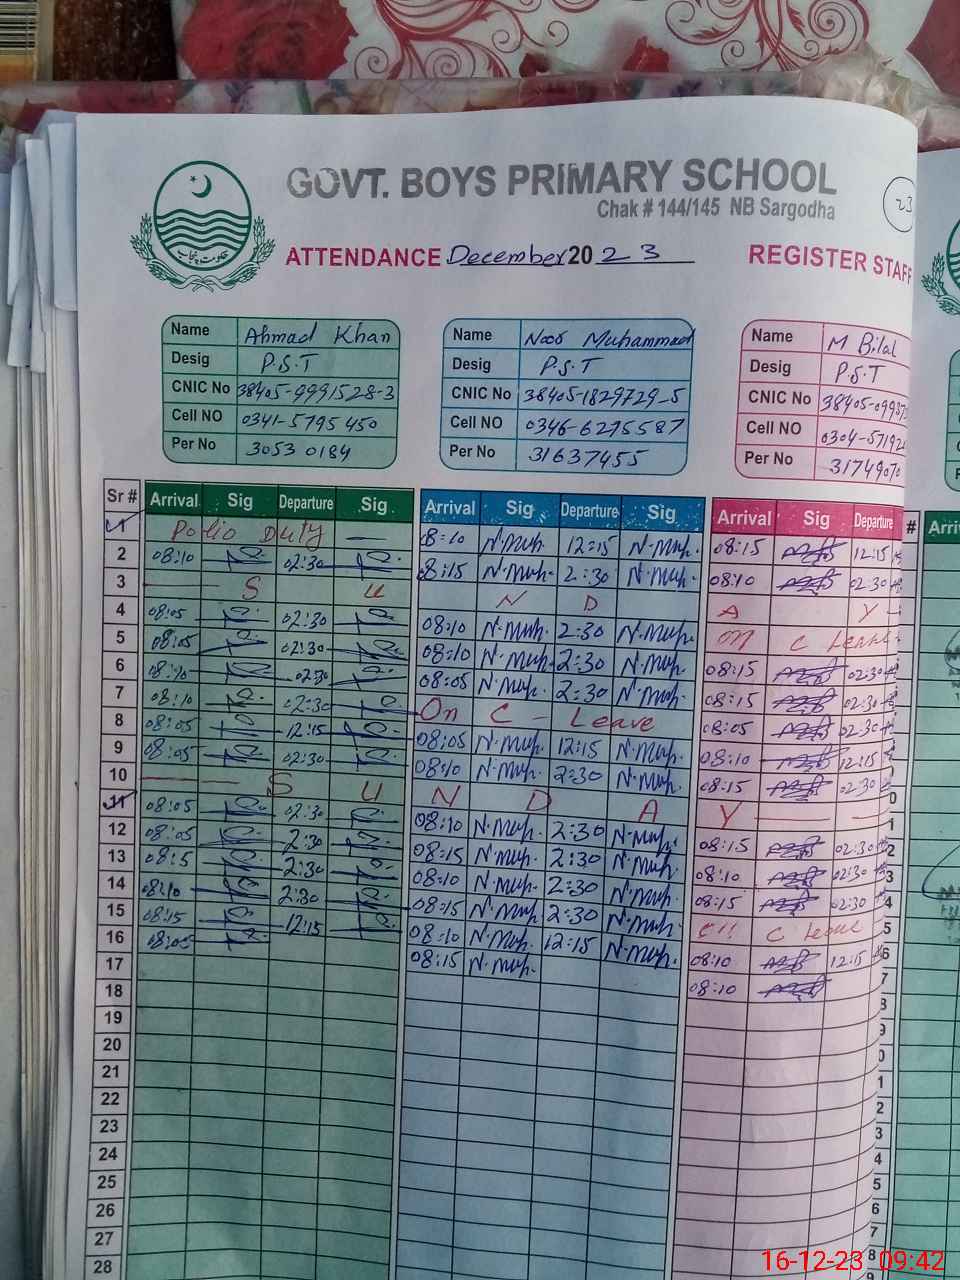 GOVT. BOYS PRIMARY SCHOOL
Chak # 144/145 NB Sargodha
23
حکومت پنجاب
ATTENDANCE December 2023 REGISTER STAFF
Name Ahmad Khan
Desig P.S.T
CNIC No 38405-9991528-3
Cell NO 0341-5795450
Per No 30530184
Name Noor Muhammad
Desig P.S.T
CNIC No 38405-1829729-5
Cell NO 0346-6275587
Per No 31637455
Name M Bilal
Desig P.S.T
CNIC No 38405-0998
Cell NO 0304-5719
Per No 3174907
Sr # Arrival Sig Departure Sig Arrival Sig Departure Sig Arrival Sig Departure # Arri
1 Polio Duty — 08:10 N.Muh. 12:15 N.Muh. 08:15 12:15
2 08:10 02:30 08:15 N.Muh. 2:30 N.Muh. 08:10 02:30
3 S U N D A Y
4 08:05 02:30 08:10 N.Muh. 2:30 N.Muh. on C Leave
5 08:05 02:30 08:10 N.Muh. 2:30 N.Muh. 08:15 02:30
6 08:10 02:30 08:05 N.Muh. 2:30 N.Muh. 08:15 02:30
7 08:10 02:30 On C - Leave 08:05 02:30
8 08:05 12:15 08:05 N.Muh. 12:15 N.Muh. 08:10 12:15
9 08:05 02:30 08:10 N.Muh. 2:30 N.Muh. 08:15 02:30
10 S U N D A Y
11 08:05 02:30 08:10 N.Muh. 2:30 N.Muh. 08:15 02:30
12 08:05 2:30 08:15 N.Muh. 2:30 N.Muh. 08:10 02:30
13 08:5 2:30 08:10 N.Muh. 2:30 N.Muh. 08:15 02:30
14 08:10 2:30 08:15 N.Muh. 2:30 N.Muh. C Leave
15 08:15 12:15 08:10 N.Muh. 12:15 N.Muh. 08:10 12:15
16 08:05 08:15 N.Muh. 08:10
17
18
19
20
21
22
23
24
25
26
27
28
16-12-23 09:42